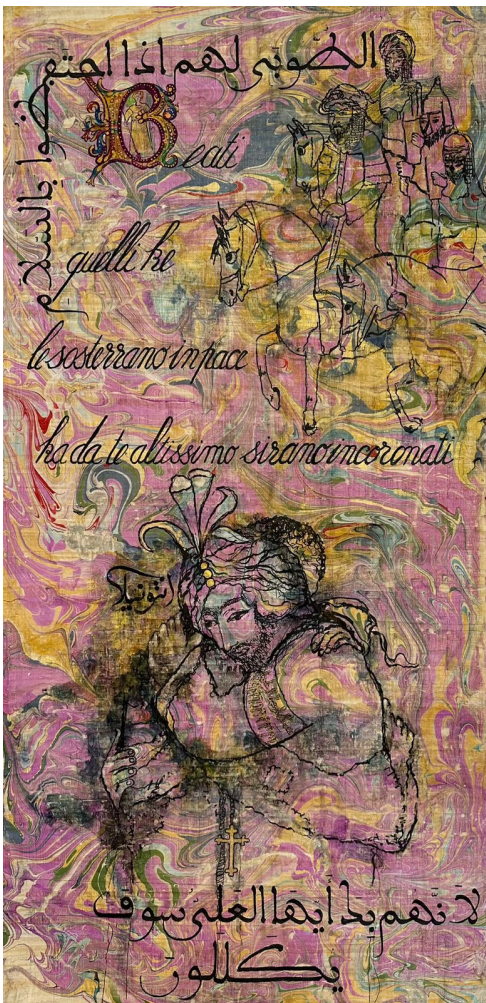 الطوبى لهم اذا احتفظوا بالسلام
Beati
quelli ke
le sosterrano in pace
ka da te altissimo sirano incoronati
لانهم العلى سوف
يكللون